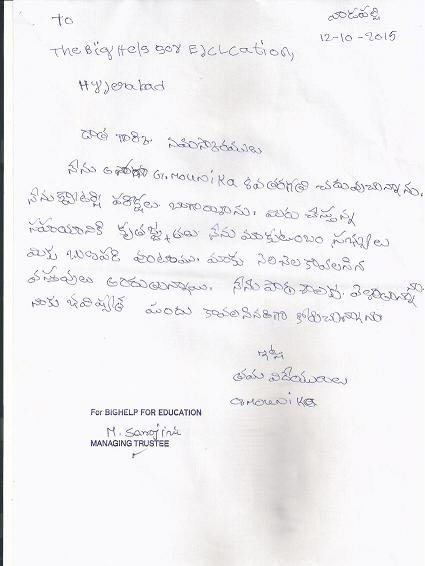 To
వాడపల్లి
12-10-2015
The Big Help for EdCLCation,
Hyderabad
దాత గారికి నమస్కారములు
నేను G. Mounika 8వ తరగతి చదువుచున్నాను.
నేను క్వాటర్లి పరిక్షలు బాగా రాసినాను. మీరు చేస్తున్న
సహాయానికి కృతజ్ఞతలు నేను మా కుటుంబం సభ్యులు
మీకు ఋణపడి ఉంటాము. మాకు కావలసిన
వస్తువులు అందుతున్నాయి. నేను
నాకు భవిష్యత్ కావలసినదిగా కోరుచున్నాను
ఇట్లు
తమ విదేయురాలు
G Mounika
For BIGHELP FOR EDUCATION
M. Sarojini
MANAGING TRUSTEE